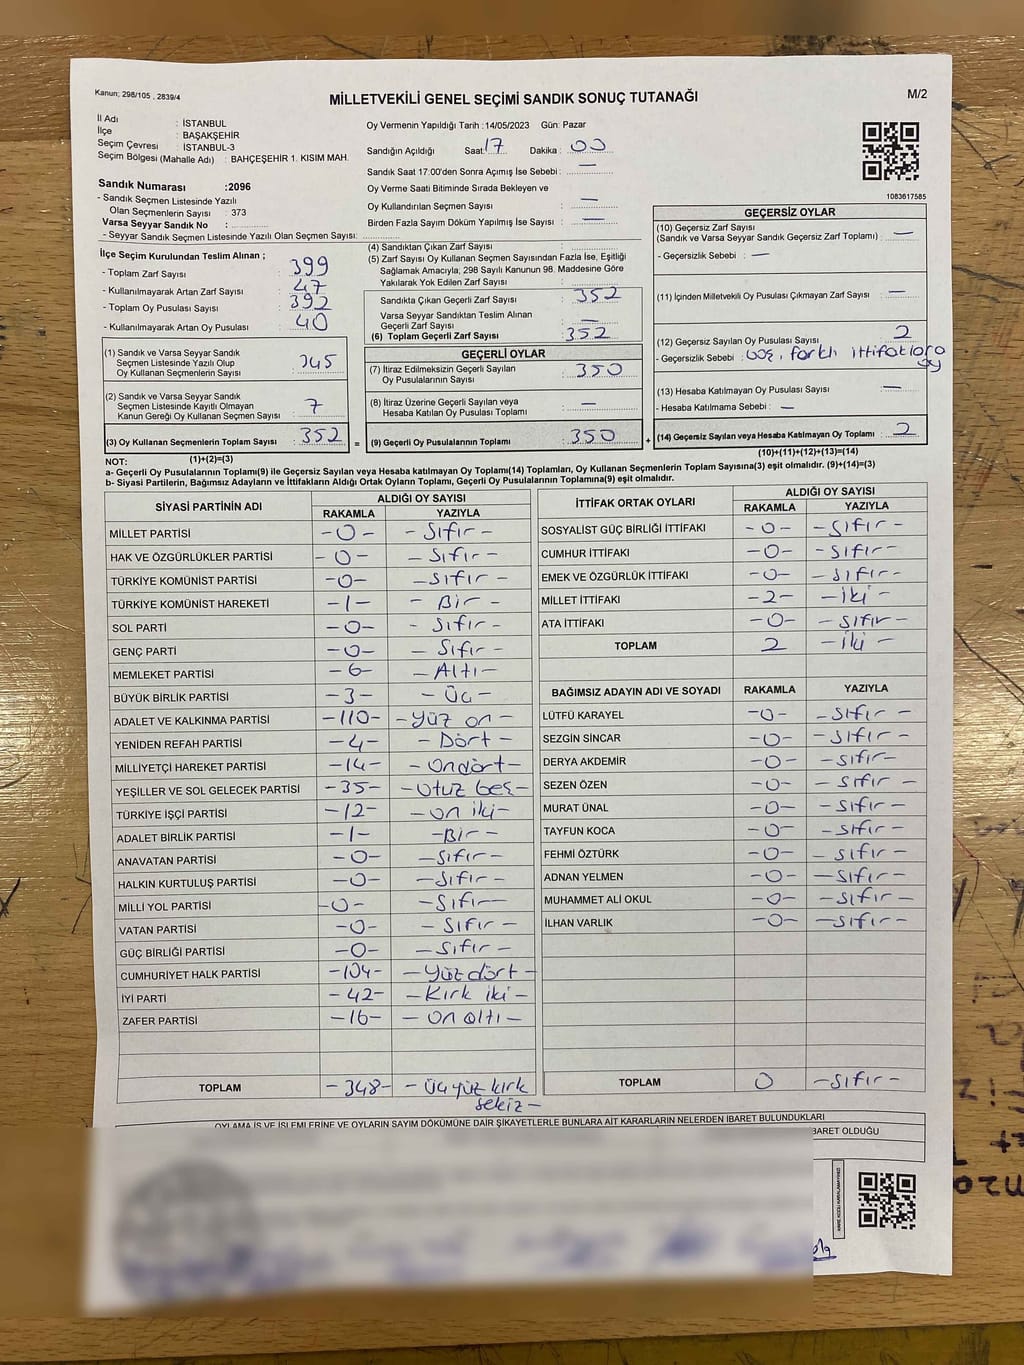 Kanun; 298/105 , 2839/4
MİLLETVEKİLİ GENEL SEÇİMİ SANDIK SONUÇ TUTANAĞI
M/2
İl Adı : İSTANBUL
İlçe : BAŞAKŞEHİR
Seçim Çevresi : İSTANBUL-3
Seçim Bölgesi (Mahalle Adı) : BAHÇEŞEHİR 1. KISIM MAH.
Sandık Numarası :2096
- Sandık Seçmen Listesinde Yazılı
Olan Seçmenlerin Sayısı : 373
Varsa Seyyar Sandık No :
- Seyyar Sandık Seçmen Listesinde Yazılı Olan Seçmen Sayısı:
Oy Vermenin Yapıldığı Tarih :14/05/2023 Gün: Pazar
Sandığın Açıldığı Saat: 17 Dakika : 00
Sandık Saat 17:00'den Sonra Açımış İse Sebebi : —
Oy Verme Saati Bitiminde Sırada Bekleyen ve
Oy Kullandırılan Seçmen Sayısı : —
Birden Fazla Sayım Döküm Yapılmış İse Sayısı : —
1083617585
İlçe Seçim Kurulundan Teslim Alınan ;
- Toplam Zarf Sayısı : 399
- Kullanılmayarak Artan Zarf Sayısı : 47
- Toplam Oy Pusulası Sayısı : 392
- Kullanılmayarak Artan Oy Pusulası : 40
(1) Sandık ve Varsa Seyyar Sandık
Seçmen Listesinde Yazılı Olup
Oy Kullanan Seçmenlerin Sayısı : 345
(2) Sandık ve Varsa Seyyar Sandık
Seçmen Listesinde Kayıtlı Olmayan
Kanun Gereği Oy Kullanan Seçmen Sayısı : 7
(3) Oy Kullanan Seçmenlerin Toplam Sayısı : 352 =
(1)+(2)=(3)
(4) Sandıktan Çıkan Zarf Sayısı :
(5) Zarf Sayısı Oy Kullanan Seçmen Sayısından Fazla İse, Eşitliği
Sağlamak Amacıyla, 298 Sayılı Kanunun 98. Maddesine Göre
Yakılarak Yok Edilen Zarf Sayısı :
Sandıkta Çıkan Geçerli Zarf Sayısı : 352
Varsa Seyyar Sandıktan Teslim Alınan
Geçerli Zarf Sayısı : —
(6) Toplam Geçerli Zarf Sayısı : 352
GEÇERLİ OYLAR
(7) İtiraz Edilmeksizin Geçerli Sayılan
Oy Pusulalarının Sayısı : 350
(8) İtiraz Üzerine Geçerli Sayılan veya
Hesaba Katılan Oy Pusulası Toplamı : —
(9) Geçerli Oy Pusulalarının Toplamı : 350 +
GEÇERSİZ OYLAR
(10) Geçersiz Zarf Sayısı
(Sandık ve Varsa Seyyar Sandık Geçersiz Zarf Toplamı) : —
- Geçersizlik Sebebi : —
(11) İçinden Milletvekili Oy Pusulası Çıkmayan Zarf Sayısı : —
(12) Geçersiz Sayılan Oy Pusulası Sayısı : 2
- Geçersizlik Sebebi : boş, farklı ittifaklara
oy
(13) Hesaba Katılmayan Oy Pusulası Sayısı : —
- Hesaba Katılmama Sebebi : —
(14) Geçersiz Sayılan veya Hesaba Katılmayan Oy Toplamı : 2
(10)+(11)+(12)+(13)=(14)
NOT:
a- Geçerli Oy Pusulalarının Toplamı(9) ile Geçersiz Sayılan veya Hesaba katılmayan Oy Toplamı(14) Toplamları, Oy Kullanan Seçmenlerin Toplam Sayısına(3) eşit olmalıdır. (9)+(14)=(3)
b- Siyasi Partilerin, Bağımsız Adayların ve İttifakların Aldığı Ortak Oyların Toplamı, Geçerli Oy Pusulalarının Toplamına(9) eşit olmalıdır.
SİYASİ PARTİNİN ADI ALDIĞI OY SAYISI
RAKAMLA YAZIYLA
MİLLET PARTİSİ -0- - Sıfır -
HAK VE ÖZGÜRLÜKLER PARTİSİ -0- - Sıfır -
TÜRKİYE KOMÜNİST PARTİSİ -0- - Sıfır -
TÜRKİYE KOMÜNİST HAREKETİ -1- - Bir -
SOL PARTİ -0- - Sıfır -
GENÇ PARTİ -0- - Sıfır -
MEMLEKET PARTİSİ -6- - Altı -
BÜYÜK BİRLİK PARTİSİ -3- - Üç -
ADALET VE KALKINMA PARTİSİ -110- - Yüz on -
YENİDEN REFAH PARTİSİ -4- - Dört -
MİLLİYETÇİ HAREKET PARTİSİ -14- - Ondört -
YEŞİLLER VE SOL GELECEK PARTİSİ -35- - Otuz beş -
TÜRKİYE İŞÇİ PARTİSİ -12- - On iki -
ADALET BİRLİK PARTİSİ -1- - Bir -
ANAVATAN PARTİSİ -0- - Sıfır -
HALKIN KURTULUŞ PARTİSİ -0- - Sıfır -
MİLLİ YOL PARTİSİ -0- - Sıfır -
VATAN PARTİSİ -0- - Sıfır -
GÜÇ BİRLİĞİ PARTİSİ -0- - Sıfır -
CUMHURİYET HALK PARTİSİ -104- - Yüz dört -
İYİ PARTİ -42- - Kırk iki -
ZAFER PARTİSİ -16- - On altı -
TOPLAM -348- - Üç yüz kırk
sekiz -
İTTİFAK ORTAK OYLARI ALDIĞI OY SAYISI
RAKAMLA YAZIYLA
SOSYALİST GÜÇ BİRLİĞİ İTTİFAKI -0- - Sıfır -
CUMHUR İTTİFAKI -0- - Sıfır -
EMEK VE ÖZGÜRLÜK İTTİFAKI -0- - Sıfır -
MİLLET İTTİFAKI -2- - İki -
ATA İTTİFAKI -0- - Sıfır -
TOPLAM 2 - İki -
BAĞIMSIZ ADAYIN ADI VE SOYADI RAKAMLA YAZIYLA
LÜTFÜ KARAYEL -0- - Sıfır -
SEZGİN SİNCAR -0- - Sıfır -
DERYA AKDEMİR -0- - Sıfır -
SEZEN ÖZEN -0- - Sıfır -
MURAT ÜNAL -0- - Sıfır -
TAYFUN KOCA -0- - Sıfır -
FEHMİ ÖZTÜRK -0- - Sıfır -
ADNAN YELMEN -0- - Sıfır -
MUHAMMET ALİ OKUL -0- - Sıfır -
İLHAN VARLIK -0- - Sıfır -
TOPLAM 0 - Sıfır -
OYLAMA İŞ VE İŞLEMLERİNE VE OYLARIN SAYIM DÖKÜMÜNE DAİR ŞİKAYETLERLE BUNLARA AİT KARARLARIN NELERDEN İBARET BULUNDUKLARI
İBARET OLDUĞU